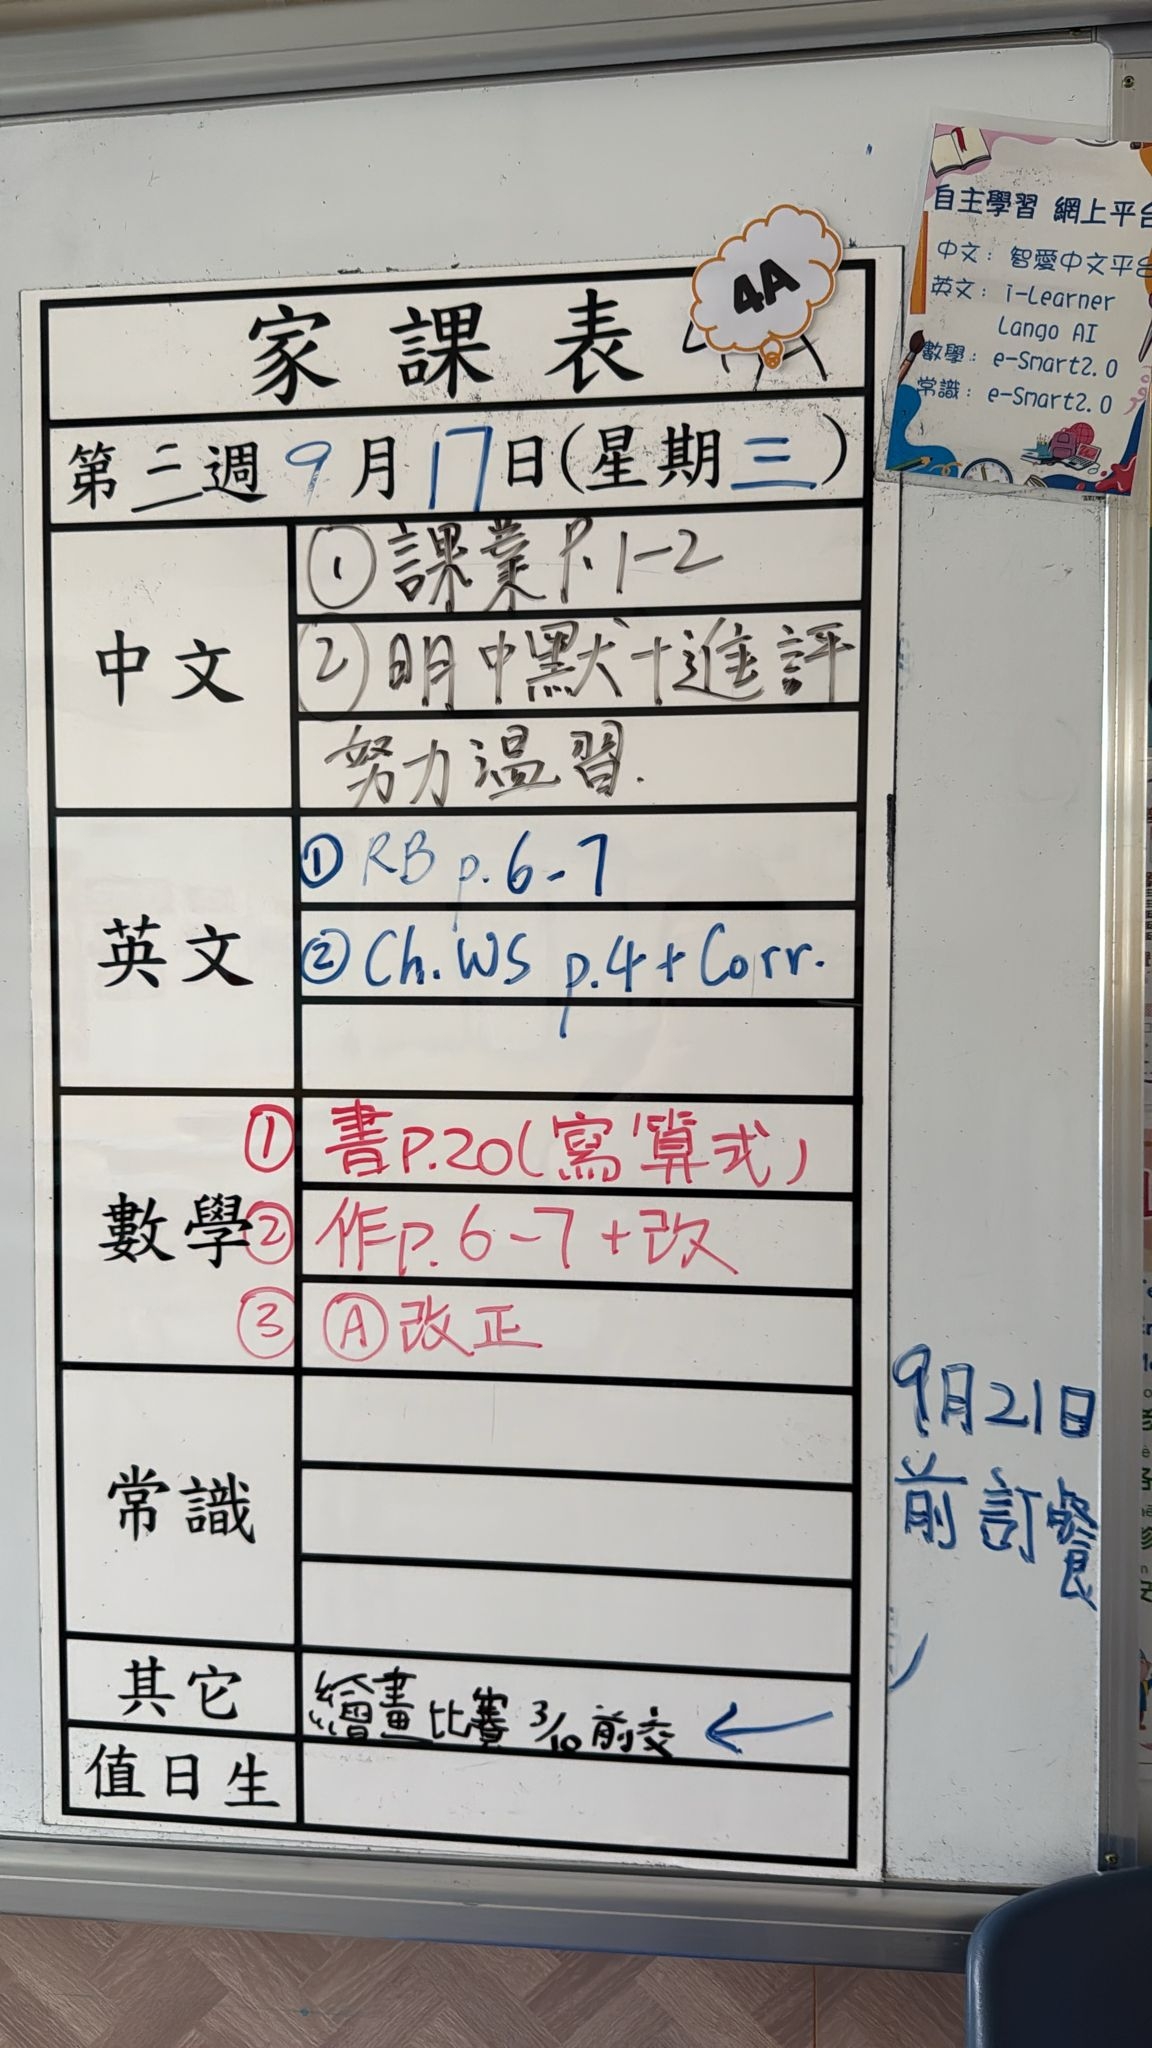 4A
家課表
第三週9月17日(星期三)
中文
① 課業P.1-2
② 明中默+進評
努力温習.
英文
① RB p.6-7
② Ch.WS p.4 + Corr.
數學
① 書P.20(寫算式)
② 作P.6-7+改
③ Ⓐ改正
常識
其它
繪畫比賽 3/10前交 ←
值日生
9月21日
前訂餐
自主學習 網上平台
中文：智愛中文平台
英文：i-Learner
Lango AI
數學：e-Smart2.0
常識：e-Smart2.0